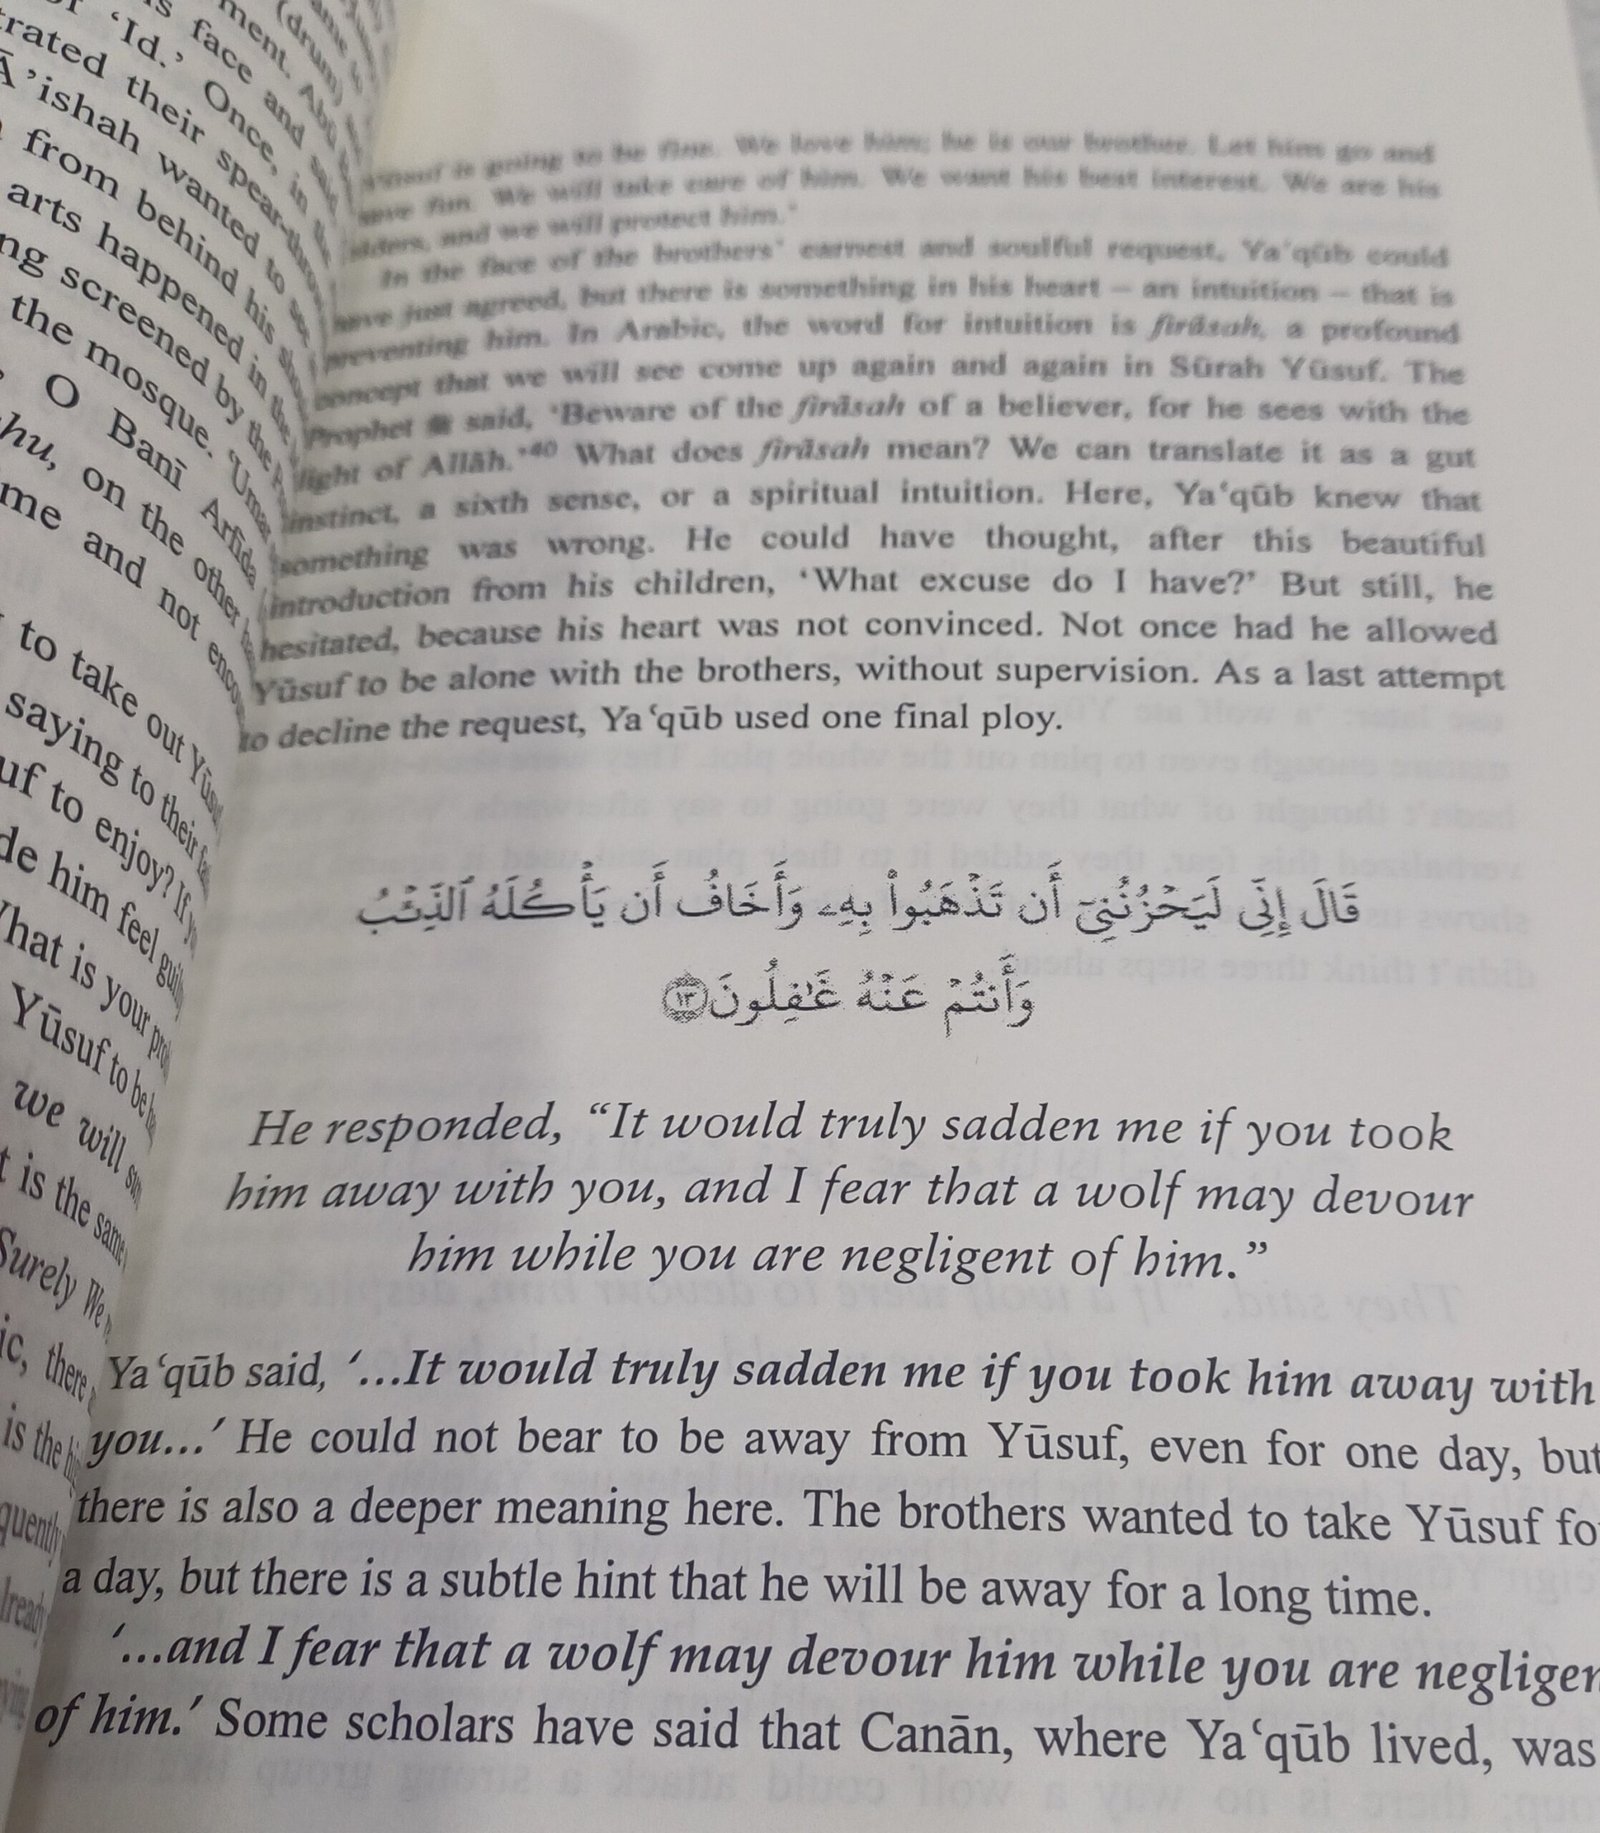 ment. Abū
(drum)
face and said
of ‘Id.’ Once, in the
trated their spear-throw
Ā’ishah wanted to see
from behind his
arts happened in the
ng screened by the
the mosque. ‘Umar
O Banī Arfida
hu, on the other
me and not
to take out Yūsuf
saying to their
uf to enjoy? If
de him feel guilty
What is your
Yūsuf to be
we will
t is the same
Surely We
ic, there
is the
Yūsuf is going to be fine. We love him; he is our brother. Let him go and
have fun. We will take care of him. We want his best interest. We are his
elders, and we will protect him.’
In the face of the brothers’ earnest and soulful request, Ya‘qūb could
have just agreed, but there is something in his heart – an intuition – that is
preventing him. In Arabic, the word for intuition is firāsah, a profound
concept that we will see come up again and again in Sūrah Yūsuf. The
Prophet ﷺ said, ‘Beware of the firāsah of a believer, for he sees with the
light of Allāh.’40 What does firāsah mean? We can translate it as a gut
instinct, a sixth sense, or a spiritual intuition. Here, Ya‘qūb knew that
something was wrong. He could have thought, after this beautiful
introduction from his children, ‘What excuse do I have?’ But still, he
hesitated, because his heart was not convinced. Not once had he allowed
Yūsuf to be alone with the brothers, without supervision. As a last attempt
to decline the request, Ya‘qūb used one final ploy.
قَالَ إِنِّى لَيَحْزُنُنِىٓ أَن تَذْهَبُوا۟ بِهِۦ وَأَخَافُ أَن يَأْكُلَهُ ٱلذِّئْبُ
وَأَنتُمْ عَنْهُ غَـٰفِلُونَ ١٣
He responded, “It would truly sadden me if you took
him away with you, and I fear that a wolf may devour
him while you are negligent of him.”
Ya‘qūb said, ‘...It would truly sadden me if you took him away with
you...’ He could not bear to be away from Yūsuf, even for one day, but
there is also a deeper meaning here. The brothers wanted to take Yūsuf fo
a day, but there is a subtle hint that he will be away for a long time.
‘...and I fear that a wolf may devour him while you are negligen
of him.’ Some scholars have said that Canān, where Ya‘qūb lived, was